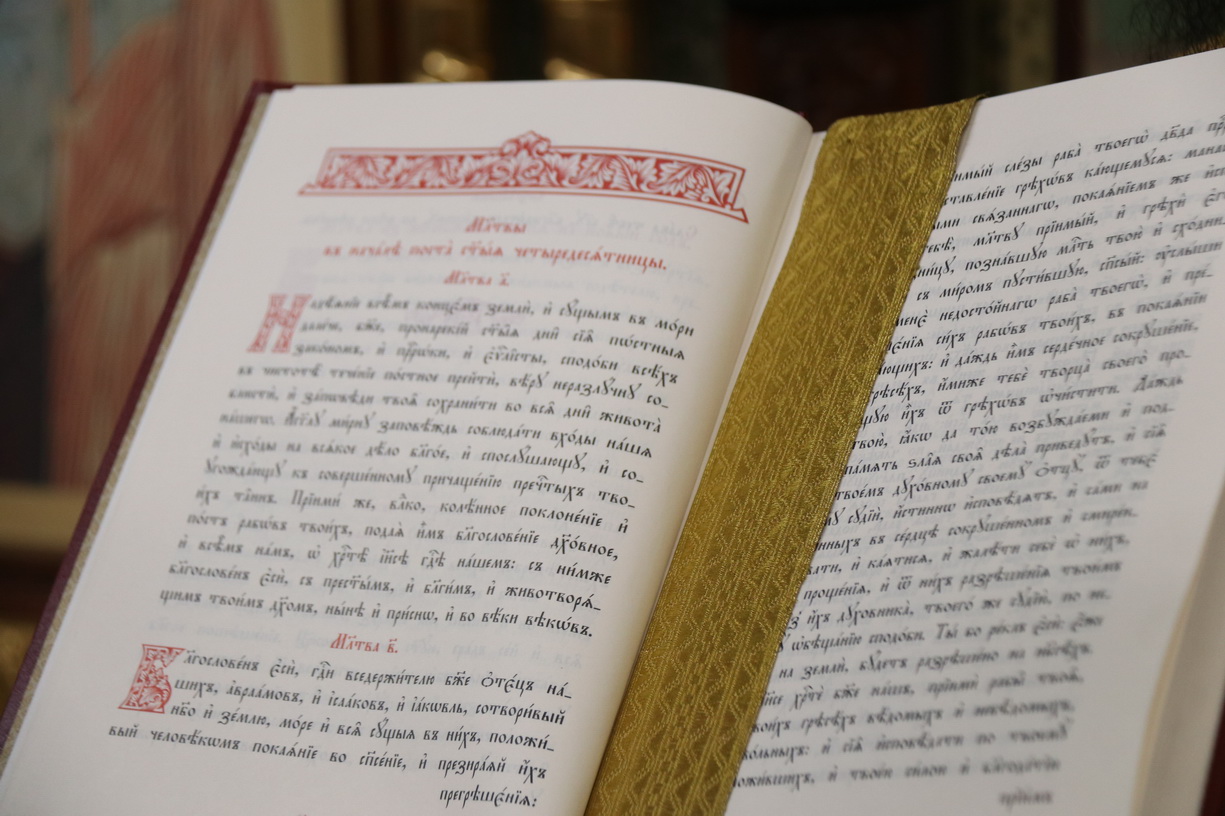 Мл҃твы
въ нача́лѣ поста̀ ст҃ы́ѧ четыредесѧ́тницы.
Мл҃тва а҃.
Наде́жде всѣ́мъ концє́мъ землѝ, и҆ сꙋ́щымъ въ мо́ри
дале́че, бж҃е, пронарекі́й ст҃ы̑ѧ дни̑ сїѧ̑ пѡ́стныѧ
зако́номъ, и҆ прⷪ҇рѡ́ки, и҆ є҆ѵⷢ҇лі́сты, сподо́би всѣ́хъ
въ чистотѣ̀ тече́нїе по́стное прейтѝ, вѣ́рꙋ неразлꙋ́чнꙋ со-
блюстѝ, и҆ за́повѣди твоѧ̑ сохрани́ти во всѧ̑ дни̑ живота̀
на́шегѡ. А҆́гг҃лꙋ ми́рнꙋ запове́ждь соблюда́ти вхо́ды на́шѧ
и҆ и҆схо́ды на всѧ́кое дѣ́ло бл҃го́е, и҆ спослꙋ́шающꙋ, и҆ со-
ᲂу҆гожда́ющꙋ къ соверше́нномꙋ причаще́нїю пречⷭ҇тыхъ тво-
и́хъ та̑инъ. Прїимѝ же, влⷣко, колѣ́нное поклоне́нїе и҆
по́стъ рабѡ́въ твои́хъ, пода́ѧ и҆̀мъ бл҃гослове́нїе дх҃о́вное,
и҆ всѣ̑мъ на́мъ, ѡ҆ хрⷭ҇тѣ̀ і҆и҃сѣ гдⷭ҇ѣ на́шемъ: съ ни́мже
бл҃гослове́нъ є҆сѝ, съ прест҃ы́мъ, и҆ бл҃ги́мъ, и҆ животворѧ́-
щимъ твои́мъ дх҃омъ, ны́нѣ и҆ при́снѡ, и҆ во вѣ́ки вѣкѡ́въ.
Мл҃тва в҃.
Бл҃гослове́нъ є҆сѝ, гдⷭ҇и вседержи́телю бж҃е ѻ҆тє́цъ на́-
шихъ, а҆враа́мовъ, и҆ і҆саа́ковъ, и҆ і҆а́кѡвль, сотвори́вый
нб҃о и҆ зе́млю, мо́ре и҆ всѧ̑ сꙋ́щыѧ въ ни́хъ, положи́-
вый человѣ́кѡмъ покаѧ́нїе во сп҃се́нїе, и҆ презира́ѧй и҆́хъ
прегрѣшє́нїѧ:
слє́зы раба̀ твоегѡ̀ дв҃да
грѣхѡ́въ ка́ющемꙋсѧ:
свѧ́заннаго, покаѧ́нїемъ же
мл҃твꙋ прїимы́й, и҆ грѣхѝ
позна́вшꙋю мл҃ть твою̀ и҆
съ ми́ромъ пꙋсти́вшꙋю, сп҃сы́й: ᲂу҆слы́ши
недосто́йнаго раба̀ твоегѡ̀, и҆ пре-
си́хъ рабѡ́въ твои́хъ, въ покаѧ́нїи
и҆ да́ждь и҆̀мъ серде́чное сокрꙋше́нїе,
и҆̀миже тебѐ творца̀ своего̀ про-
и҆́хъ ѿ грѣхѡ́въ ѡ҆чи́стити. Да́ждь
ꙗ҆́кѡ да то́ю возбꙋжда́еми и҆ под-
па́мѧть ѕла̑ѧ своѧ̑ дѣла̀ приведꙋ́тъ, и҆ сїѧ̑
дꙋхо́вномꙋ своемꙋ̀ ѻ҆тцꙋ̀, ѿ тебє̀
сꙋдїѝ, и҆́стиннѡ и҆сповѣ́дѧтъ, и҆ са́ми на
въ се́рдцѣ сокрꙋше́нномъ и҆ смире́н-
и҆ ка́ѧтисѧ, и҆ жалѣ́ти себѐ ѡ҆ ни́хъ,
проще́нїѧ, и҆ ѿ ни́хъ разрѣше́нїѧ твои́мъ
и҆́хъ дꙋховника̀, твоего́ же сꙋдїѝ, по
ѡ҆бѣща́нїю сподо́би. Ты́ бо ре́клъ є҆сѝ:
на землѝ, бꙋ́детъ разрѣшено̀ на нб҃сѣ́хъ.
хрⷭ҇тѐ бж҃е на́шъ, прїимѝ
грѣсѣ́хъ вѣ́домыхъ и҆ невѣ́домыхъ,
и҆ сїѧ̑ и҆сповѣ́дати по твоемꙋ̀
и҆ твое́й си́лою и҆ бл҃года́тїю